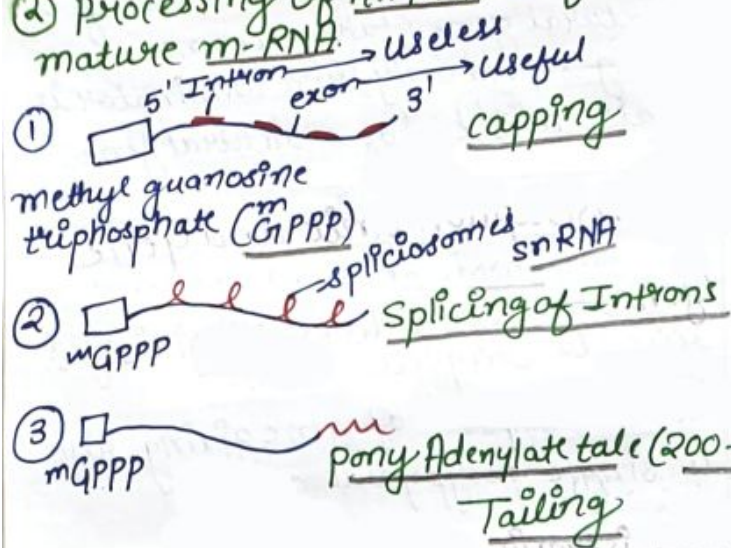 ② Processing of
mature m-RNA.
5' Intron → Useless
exon → Useful
3'
① Capping
methyl guanosine
triphosphate (mGPPP)
spliciosomes snRNA
② Splicing of Introns
mGPPP
③
mGPPP
pony Adenylate tale (200-
Tailing